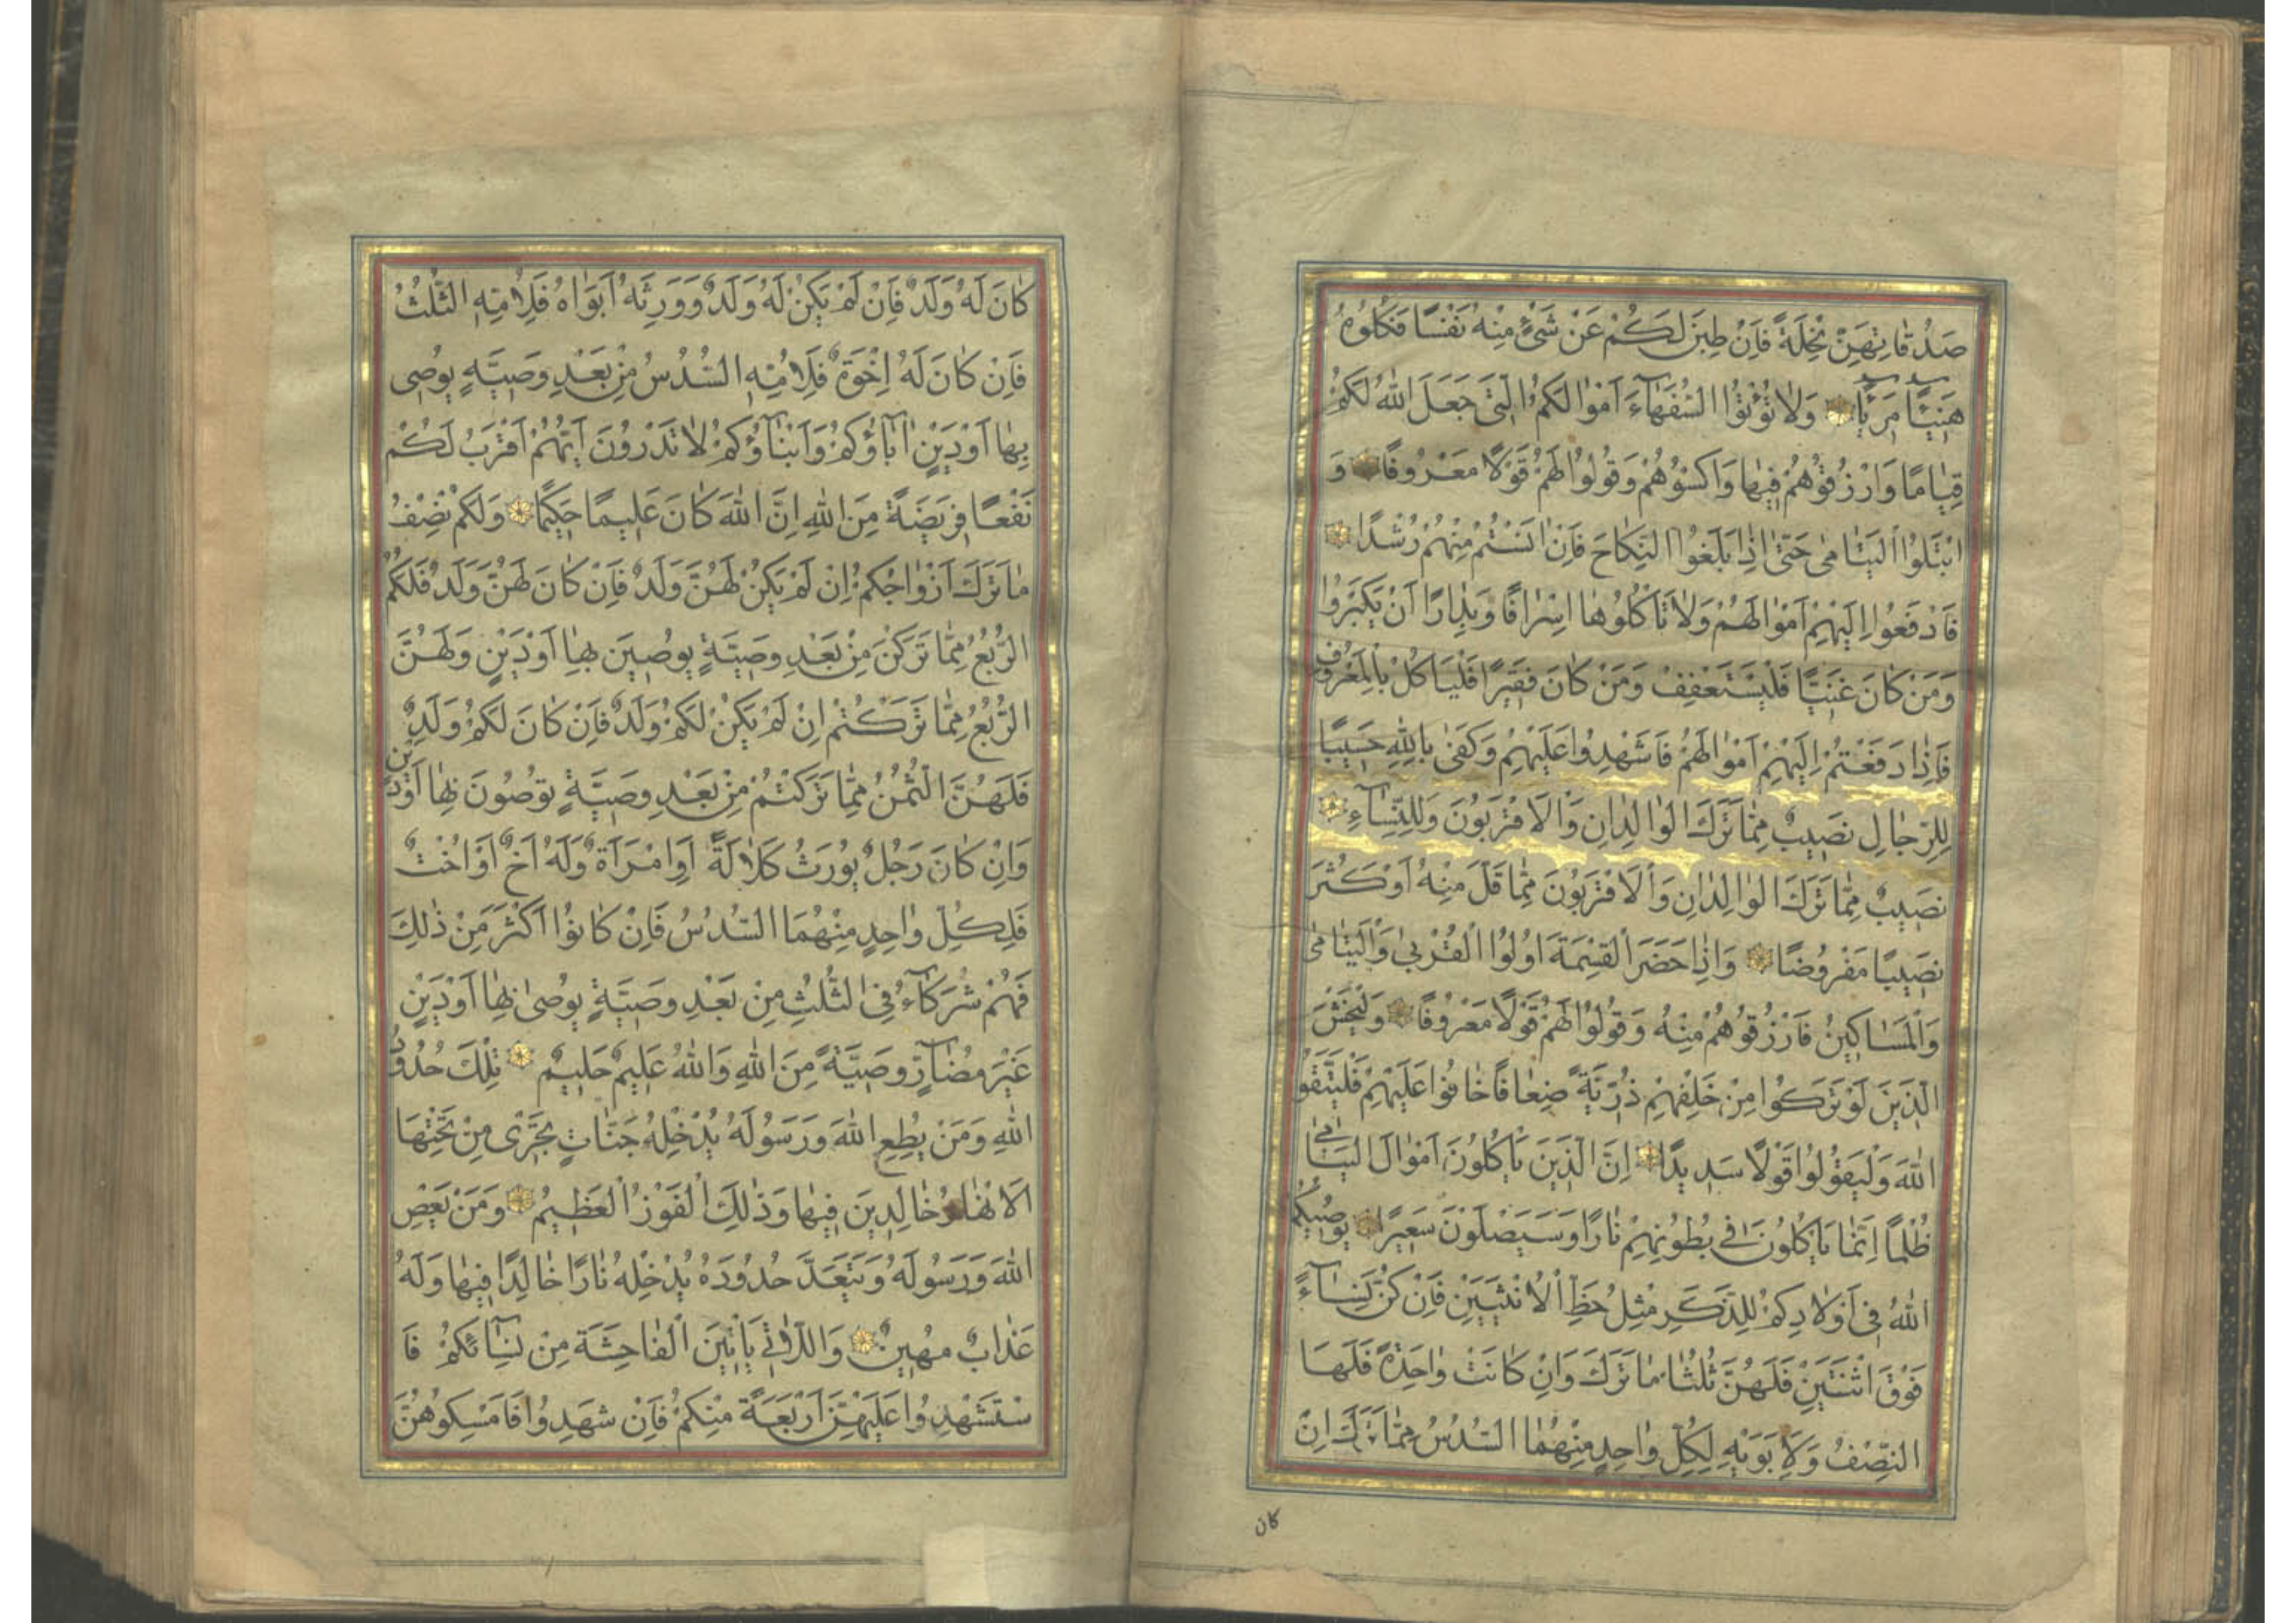 صَدُقَاتِهِنَّ نِحْلَةً فَاِنْ طِبْنَ لَكُمْ عَنْ شَيْءٍ مِنْهُ نَفْسًا فَكُلُوهُ
هَنِيئًا مَرِيئًا وَلَا تُؤْتُوا السُّفَهَاءَ اَمْوَالَكُمُ الَّتِي جَعَلَ اللهُ لَكُمْ
قِيَامًا وَارْزُقُوهُمْ فِيهَا وَاكْسُوهُمْ وَقُولُوا لَهُمْ قَوْلًا مَعْرُوفًا وَ
ابْتَلُوا الْيَتَامَى حَتَّى اِذَا بَلَغُوا النِّكَاحَ فَاِنْ اٰنَسْتُمْ مِنْهُمْ رُشْدًا
فَادْفَعُوا اِلَيْهِمْ اَمْوَالَهُمْ وَلَا تَأْكُلُوهَا اِسْرَافًا وَبِدَارًا اَنْ يَكْبَرُوا
وَمَنْ كَانَ غَنِيًّا فَلْيَسْتَعْفِفْ وَمَنْ كَانَ فَقِيرًا فَلْيَأْكُلْ بِالْمَعْرُوفِ
فَاِذَا دَفَعْتُمْ اِلَيْهِمْ اَمْوَالَهُمْ فَاَشْهِدُوا عَلَيْهِمْ وَكَفَى بِاللهِ حَسِيبًا
لِلرِّجَالِ نَصِيبٌ مِمَّا تَرَكَ الْوَالِدَانِ وَالْاَقْرَبُونَ وَلِلنِّسَاءِ
نَصِيبٌ مِمَّا تَرَكَ الْوَالِدَانِ وَالْاَقْرَبُونَ مِمَّا قَلَّ مِنْهُ اَوْ كَثُرَ
نَصِيبًا مَفْرُوضًا وَاِذَا حَضَرَ الْقِسْمَةَ اُولُوا الْقُرْبَى وَالْيَتَامَى
وَالْمَسَاكِينُ فَارْزُقُوهُمْ مِنْهُ وَقُولُوا لَهُمْ قَوْلًا مَعْرُوفًا وَلْيَخْشَ
الَّذِينَ لَوْ تَرَكُوا مِنْ خَلْفِهِمْ ذُرِّيَّةً ضِعَافًا خَافُوا عَلَيْهِمْ فَلْيَتَّقُوا
اللهَ وَلْيَقُولُوا قَوْلًا سَدِيدًا اِنَّ الَّذِينَ يَأْكُلُونَ اَمْوَالَ الْيَتَامَى
ظُلْمًا اِنَّمَا يَأْكُلُونَ فِي بُطُونِهِمْ نَارًا وَسَيَصْلَوْنَ سَعِيرًا يُوصِيكُمُ
اللهُ فِي اَوْلَادِكُمْ لِلذَّكَرِ مِثْلُ حَظِّ الْاُنْثَيَيْنِ فَاِنْ كُنَّ نِسَاءً
فَوْقَ اثْنَتَيْنِ فَلَهُنَّ ثُلُثَا مَا تَرَكَ وَاِنْ كَانَتْ وَاحِدَةً فَلَهَا
النِّصْفُ وَلِاَبَوَيْهِ لِكُلِّ وَاحِدٍ مِنْهُمَا السُّدُسُ مِمَّا تَرَكَ اِنْ
كان
كَانَ لَهُ وَلَدٌ فَاِنْ لَمْ يَكُنْ لَهُ وَلَدٌ وَوَرِثَهُ اَبَوَاهُ فَلِاُمِّهِ الثُّلُثُ
فَاِنْ كَانَ لَهُ اِخْوَةٌ فَلِاُمِّهِ السُّدُسُ مِنْ بَعْدِ وَصِيَّةٍ يُوصِي
بِهَا اَوْ دَيْنٍ اٰبَاؤُكُمْ وَاَبْنَاؤُكُمْ لَا تَدْرُونَ اَيُّهُمْ اَقْرَبُ لَكُمْ
نَفْعًا فَرِيضَةً مِنَ اللهِ اِنَّ اللهَ كَانَ عَلِيمًا حَكِيمًا وَلَكُمْ نِصْفُ
مَا تَرَكَ اَزْوَاجُكُمْ اِنْ لَمْ يَكُنْ لَهُنَّ وَلَدٌ فَاِنْ كَانَ لَهُنَّ وَلَدٌ فَلَكُمُ
الرُّبُعُ مِمَّا تَرَكْنَ مِنْ بَعْدِ وَصِيَّةٍ يُوصِينَ بِهَا اَوْ دَيْنٍ وَلَهُنَّ
الرُّبُعُ مِمَّا تَرَكْتُمْ اِنْ لَمْ يَكُنْ لَكُمْ وَلَدٌ فَاِنْ كَانَ لَكُمْ وَلَدٌ
فَلَهُنَّ الثُّمُنُ مِمَّا تَرَكْتُمْ مِنْ بَعْدِ وَصِيَّةٍ تُوصُونَ بِهَا اَوْ دَيْنٍ
وَاِنْ كَانَ رَجُلٌ يُورَثُ كَلَالَةً اَوِ امْرَاَةٌ وَلَهُ اَخٌ اَوْ اُخْتٌ
فَلِكُلِّ وَاحِدٍ مِنْهُمَا السُّدُسُ فَاِنْ كَانُوا اَكْثَرَ مِنْ ذٰلِكَ
فَهُمْ شُرَكَاءُ فِي الثُّلُثِ مِنْ بَعْدِ وَصِيَّةٍ يُوصَى بِهَا اَوْ دَيْنٍ
غَيْرَ مُضَارٍّ وَصِيَّةً مِنَ اللهِ وَاللهُ عَلِيمٌ حَلِيمٌ تِلْكَ حُدُودُ
اللهِ وَمَنْ يُطِعِ اللهَ وَرَسُولَهُ يُدْخِلْهُ جَنَّاتٍ تَجْرِي مِنْ تَحْتِهَا
الْاَنْهَارُ خَالِدِينَ فِيهَا وَذٰلِكَ الْفَوْزُ الْعَظِيمُ وَمَنْ يَعْصِ
اللهَ وَرَسُولَهُ وَيَتَعَدَّ حُدُودَهُ يُدْخِلْهُ نَارًا خَالِدًا فِيهَا وَلَهُ
عَذَابٌ مُهِينٌ وَاللَّاتِي يَأْتِينَ الْفَاحِشَةَ مِنْ نِسَائِكُمْ فَا
سْتَشْهِدُوا عَلَيْهِنَّ اَرْبَعَةً مِنْكُمْ فَاِنْ شَهِدُوا فَاَمْسِكُوهُنَّ